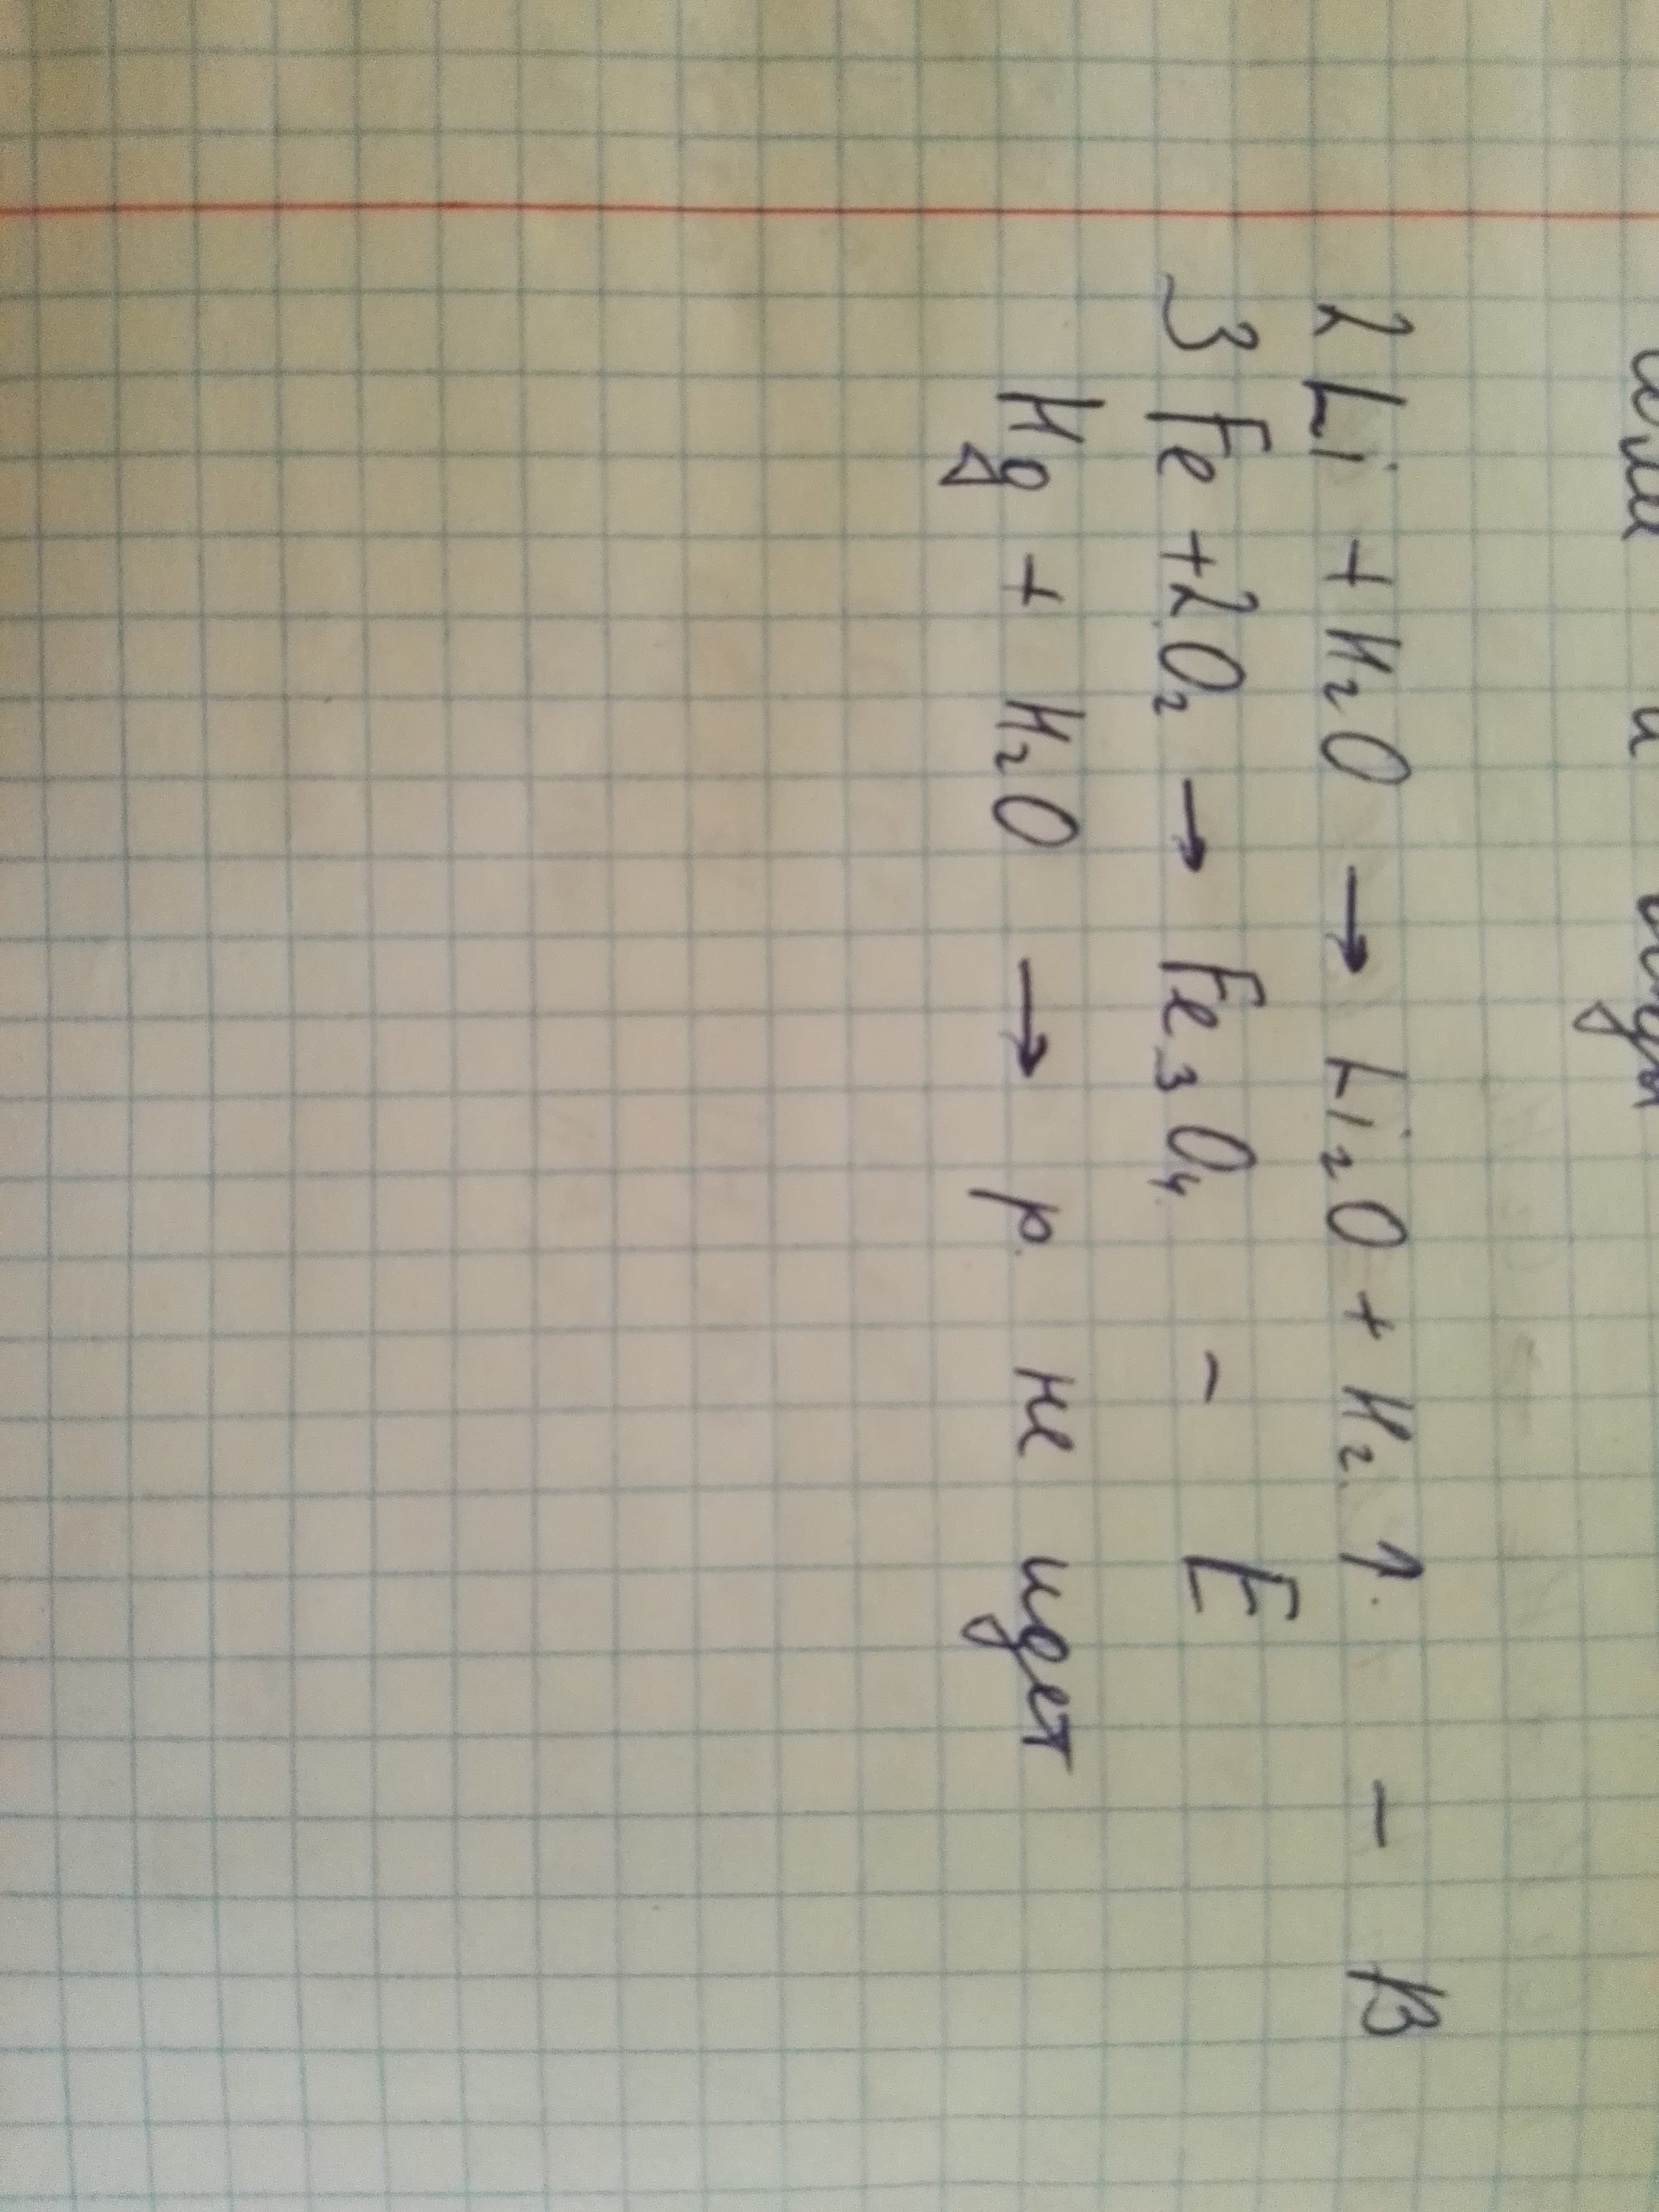 или и воды
2Li + H₂O → Li₂O + H₂↑ - В
3Fe + 2O₂ → Fe₃O₄ - E
Hg + H₂O → р. не идет